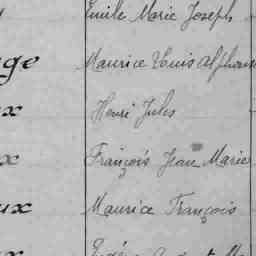 Emile Marie Joseph
ge Maurice Louis Alphons
x Henri Jules
x François Jean Marie
ux Maurice François